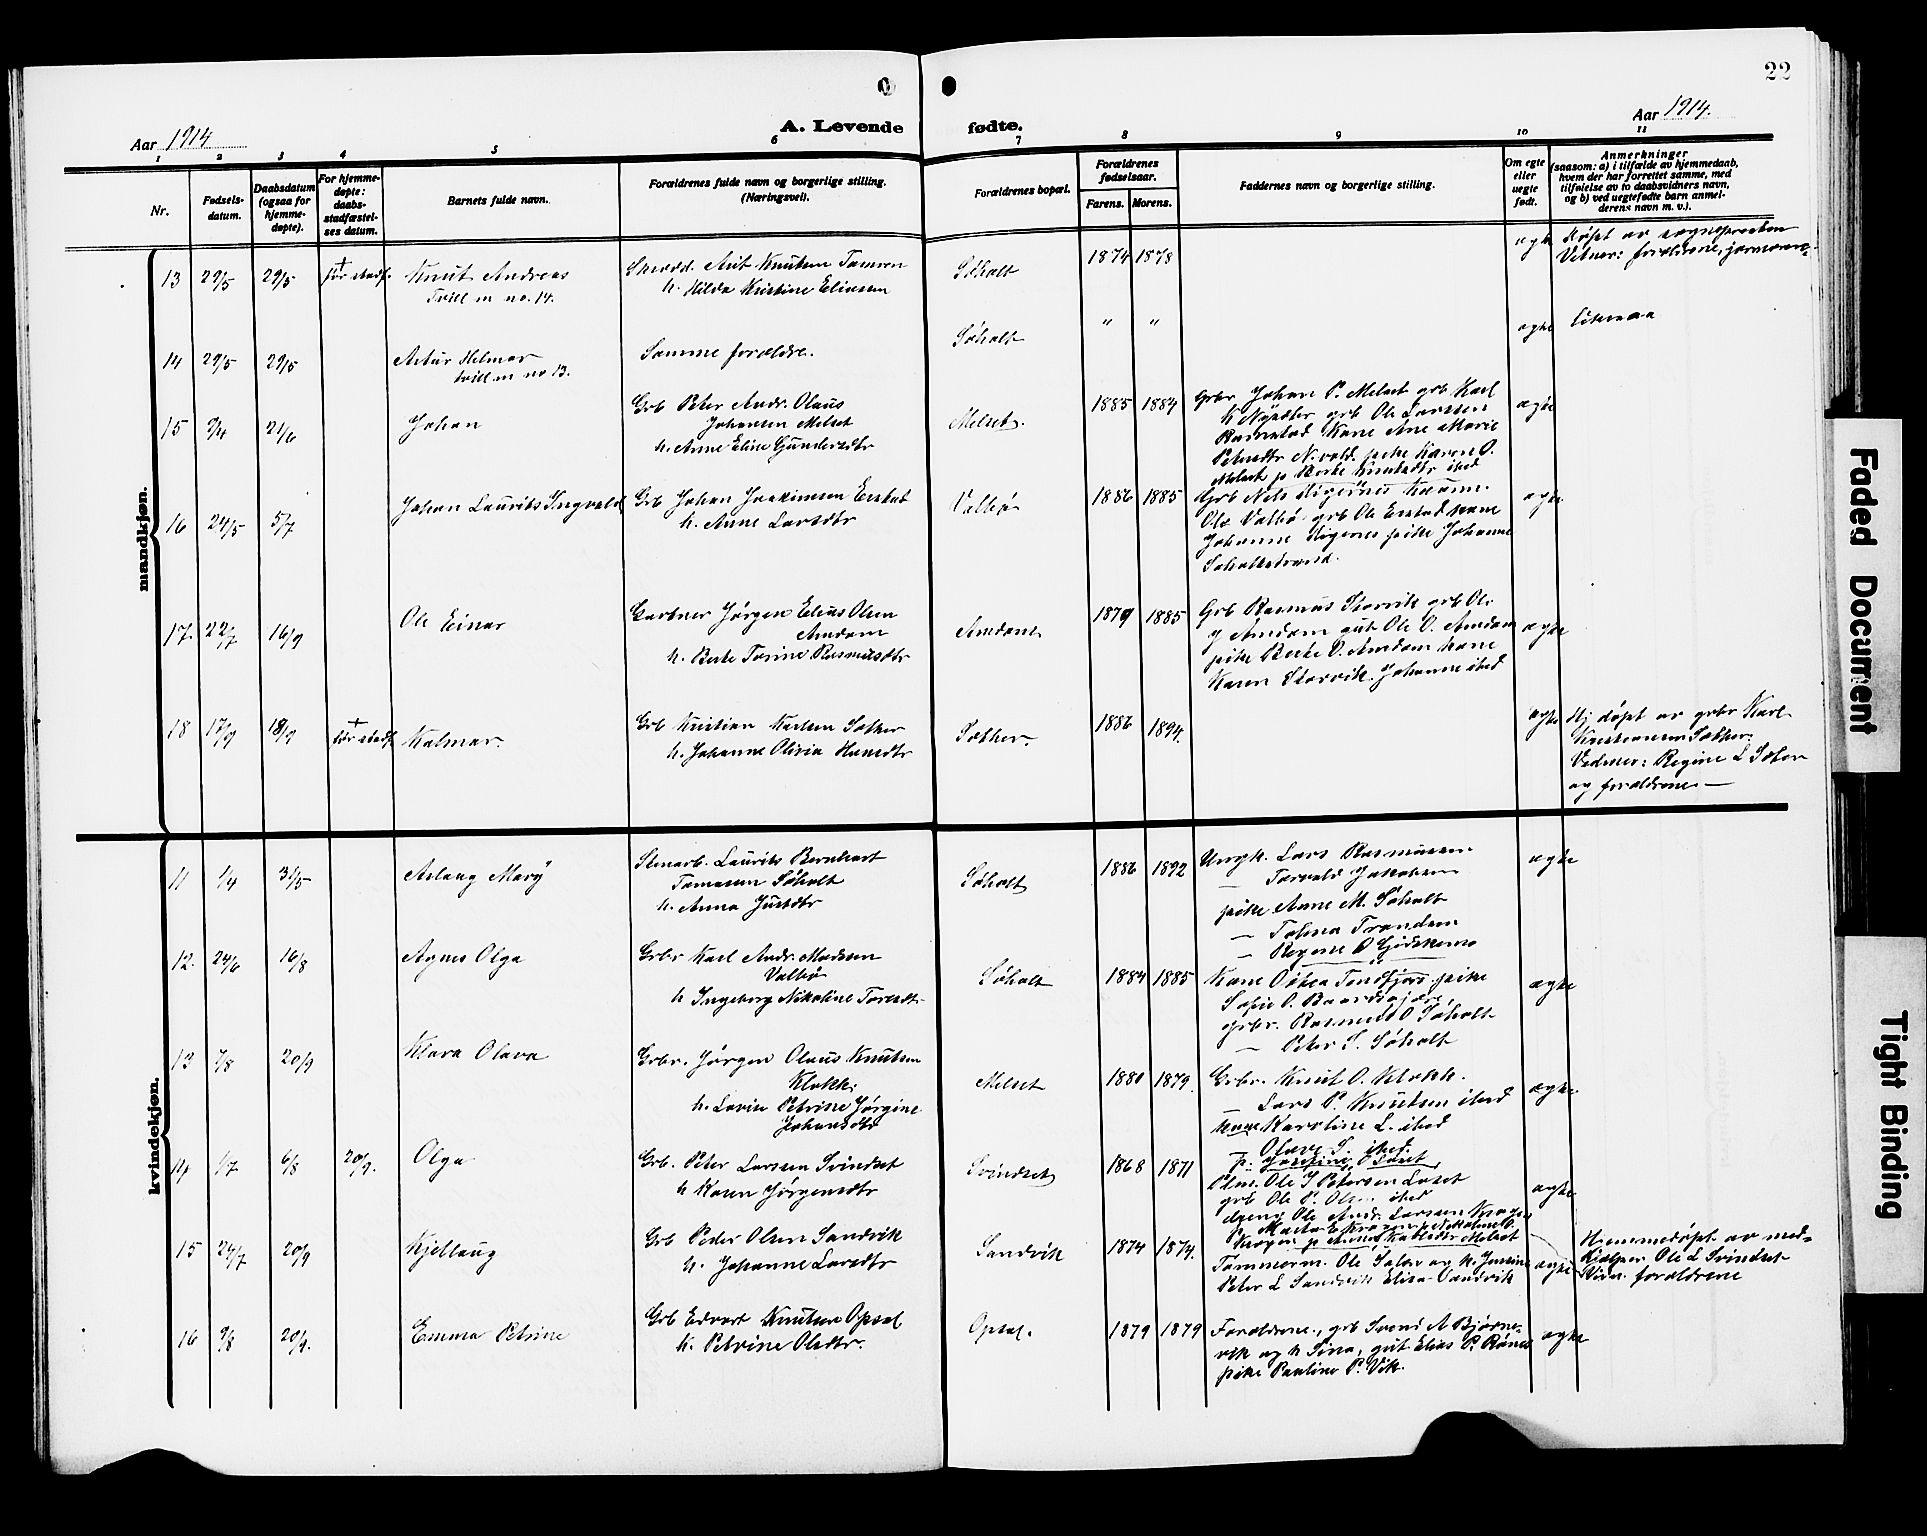 22
Aar 1914
A. Levende fødte.
Aar 1914.
1 2 3 4 5 6 7 8 9 10 11
Nr.
Fødsels-
datum.
Daabsdatum
(ogsaa for
hjemme-
døpte).
For hjemme-
døpte:
daabs-
stadfæstel-
ses datum.
Barnets fulde navn.
Forældrenes fulde navn og borgerlige stilling.
(Næringsvei).
Forældrenes bopæl.
Forældrenes
fødselsaar.
Farens. Morens.
Faddernes navn og borgerlige stilling.
Om egte
eller
uegte
født.
Anmerkninger
(saasom: a) i tilfælde av hjemmedaab,
hvem der har forrettet samme, med
tilføielse av to daabsvidners navn,
og b) ved uegtefødte barn anmel-
derens navn m. v.).
mandkjøn.
13 29/5 29/5 † før stadf.
Knut Andreas
Tvill m no. 14.
Knutsen
h. Hilda Kristine Eliasen
Søholt
1874 1878
egte
Døpt av sognepresten
Vitner: forældrene, jormoren
14 29/5 29/5
Artur Helmer
tvill m no 13.
Samme forældre.
Søholt
" "
egte
15 3/4 21/6
Johan
Grb Peter Andr. Olaus
Johansen Melset
h. Anne Eline Gundersdtr
Melset.
1885 1884
Grbr Johan P. Melset grb Karl
grb Ole Larssen
Kone Ane Marie
Petersdtr pike Karen O.
Melset
egte
16 24/5 5/7
Johan Laurits Ingvald
Grb Johan Joakimsen
h. Anne Larsdtr
Valbø
1886 1885
Grb Nils
Ole Valbø grb Ole kone
Johanne pike Johanne
Søholtstrand.
egte
17. 22/7 16/9
Ole Einar
Gartner Jørgen Elias Olsen
Amdam
h. Berte Torine Rasmusdtr
Amdam
1879 1885
Grb Rasmus Storvik grb Ole
Amdam gut Ole O. Amdam
pike Berte O. Amdam kone
Karen Storvik. Johanne ibid
egte
18 17/9 18/9 † før stadf.
Kalmar.
Grb Kristian Karlsen Sæther
h. Johanna Olivia Hansdtr
Sæther.
1886 1894.
egte
Hj døpt av grbr Karl
Kristiansen Sæther.
Vidner: Regine L
og forældrene —
kvindekjøn.
11 1/4 31/5
Aslaug Marÿ
Stenarb. Laurits Bernhart
Tomasen Søholt
h. Anna Justdtr
Søholt
1886 1892
Ungk. Lars Rasmussen
— Torvald Jakobsen
pike Anne M. Søholt
— Trondsen
— Regine O
egte
12. 24/6 16/8
Agnes Olga
Grbr Karl Andr. Madsen
Valbø
h Ingeborg Nikoline Toresdtr
Søholt
1884 1885
Kone pike
Sofie O.
grbr. Rasmus O Søholt
— Peter S. Søholt
egte
13 7/8 20/9
Klara Olava
Grbr. Jørgen Olaus Knutsen
Klokk.
h. Lovise Petrine Jørgine
Johansdtr
Melset
1880 1879.
Grbr. Knut O. Klokk.
— Lars P. Knutsen ibid
kone Karoline L. ibid
— Olave S. ibid.
egte
14 1/7 6/8 20/9.
Olga
Grb. Peter Larsen Svindset
h Karen Jørgensdtr
Svindset
1868 1871
Ole J Petersen
grb Ole P. Olsen ibid
Ole Andr. Larsen
egte
15 24/7 20/9
Kjellaug
Grb Peder Olsen Sandvik
h. Johanne Larsdtr
Sandvik
1874 1874.
Tømmerm. Ole og h. Josine
Peter L Sandvik Elisa Sandvik
egte
Hjemmedøpt av med-
hjælper Ole L Svindset
Vidn. forældrene
16 9/8 20/9.
Emma Petrine
Grb Edvart Knutsen Opsal
h. Petrine Olsdtr.
Opsal.
1879 1879
Forældrene, grb Svend A Bjørne-
vik og h Sina, gut Elias P.
pike Pauline P. Vik.
egte
Faded Document
Tight Binding